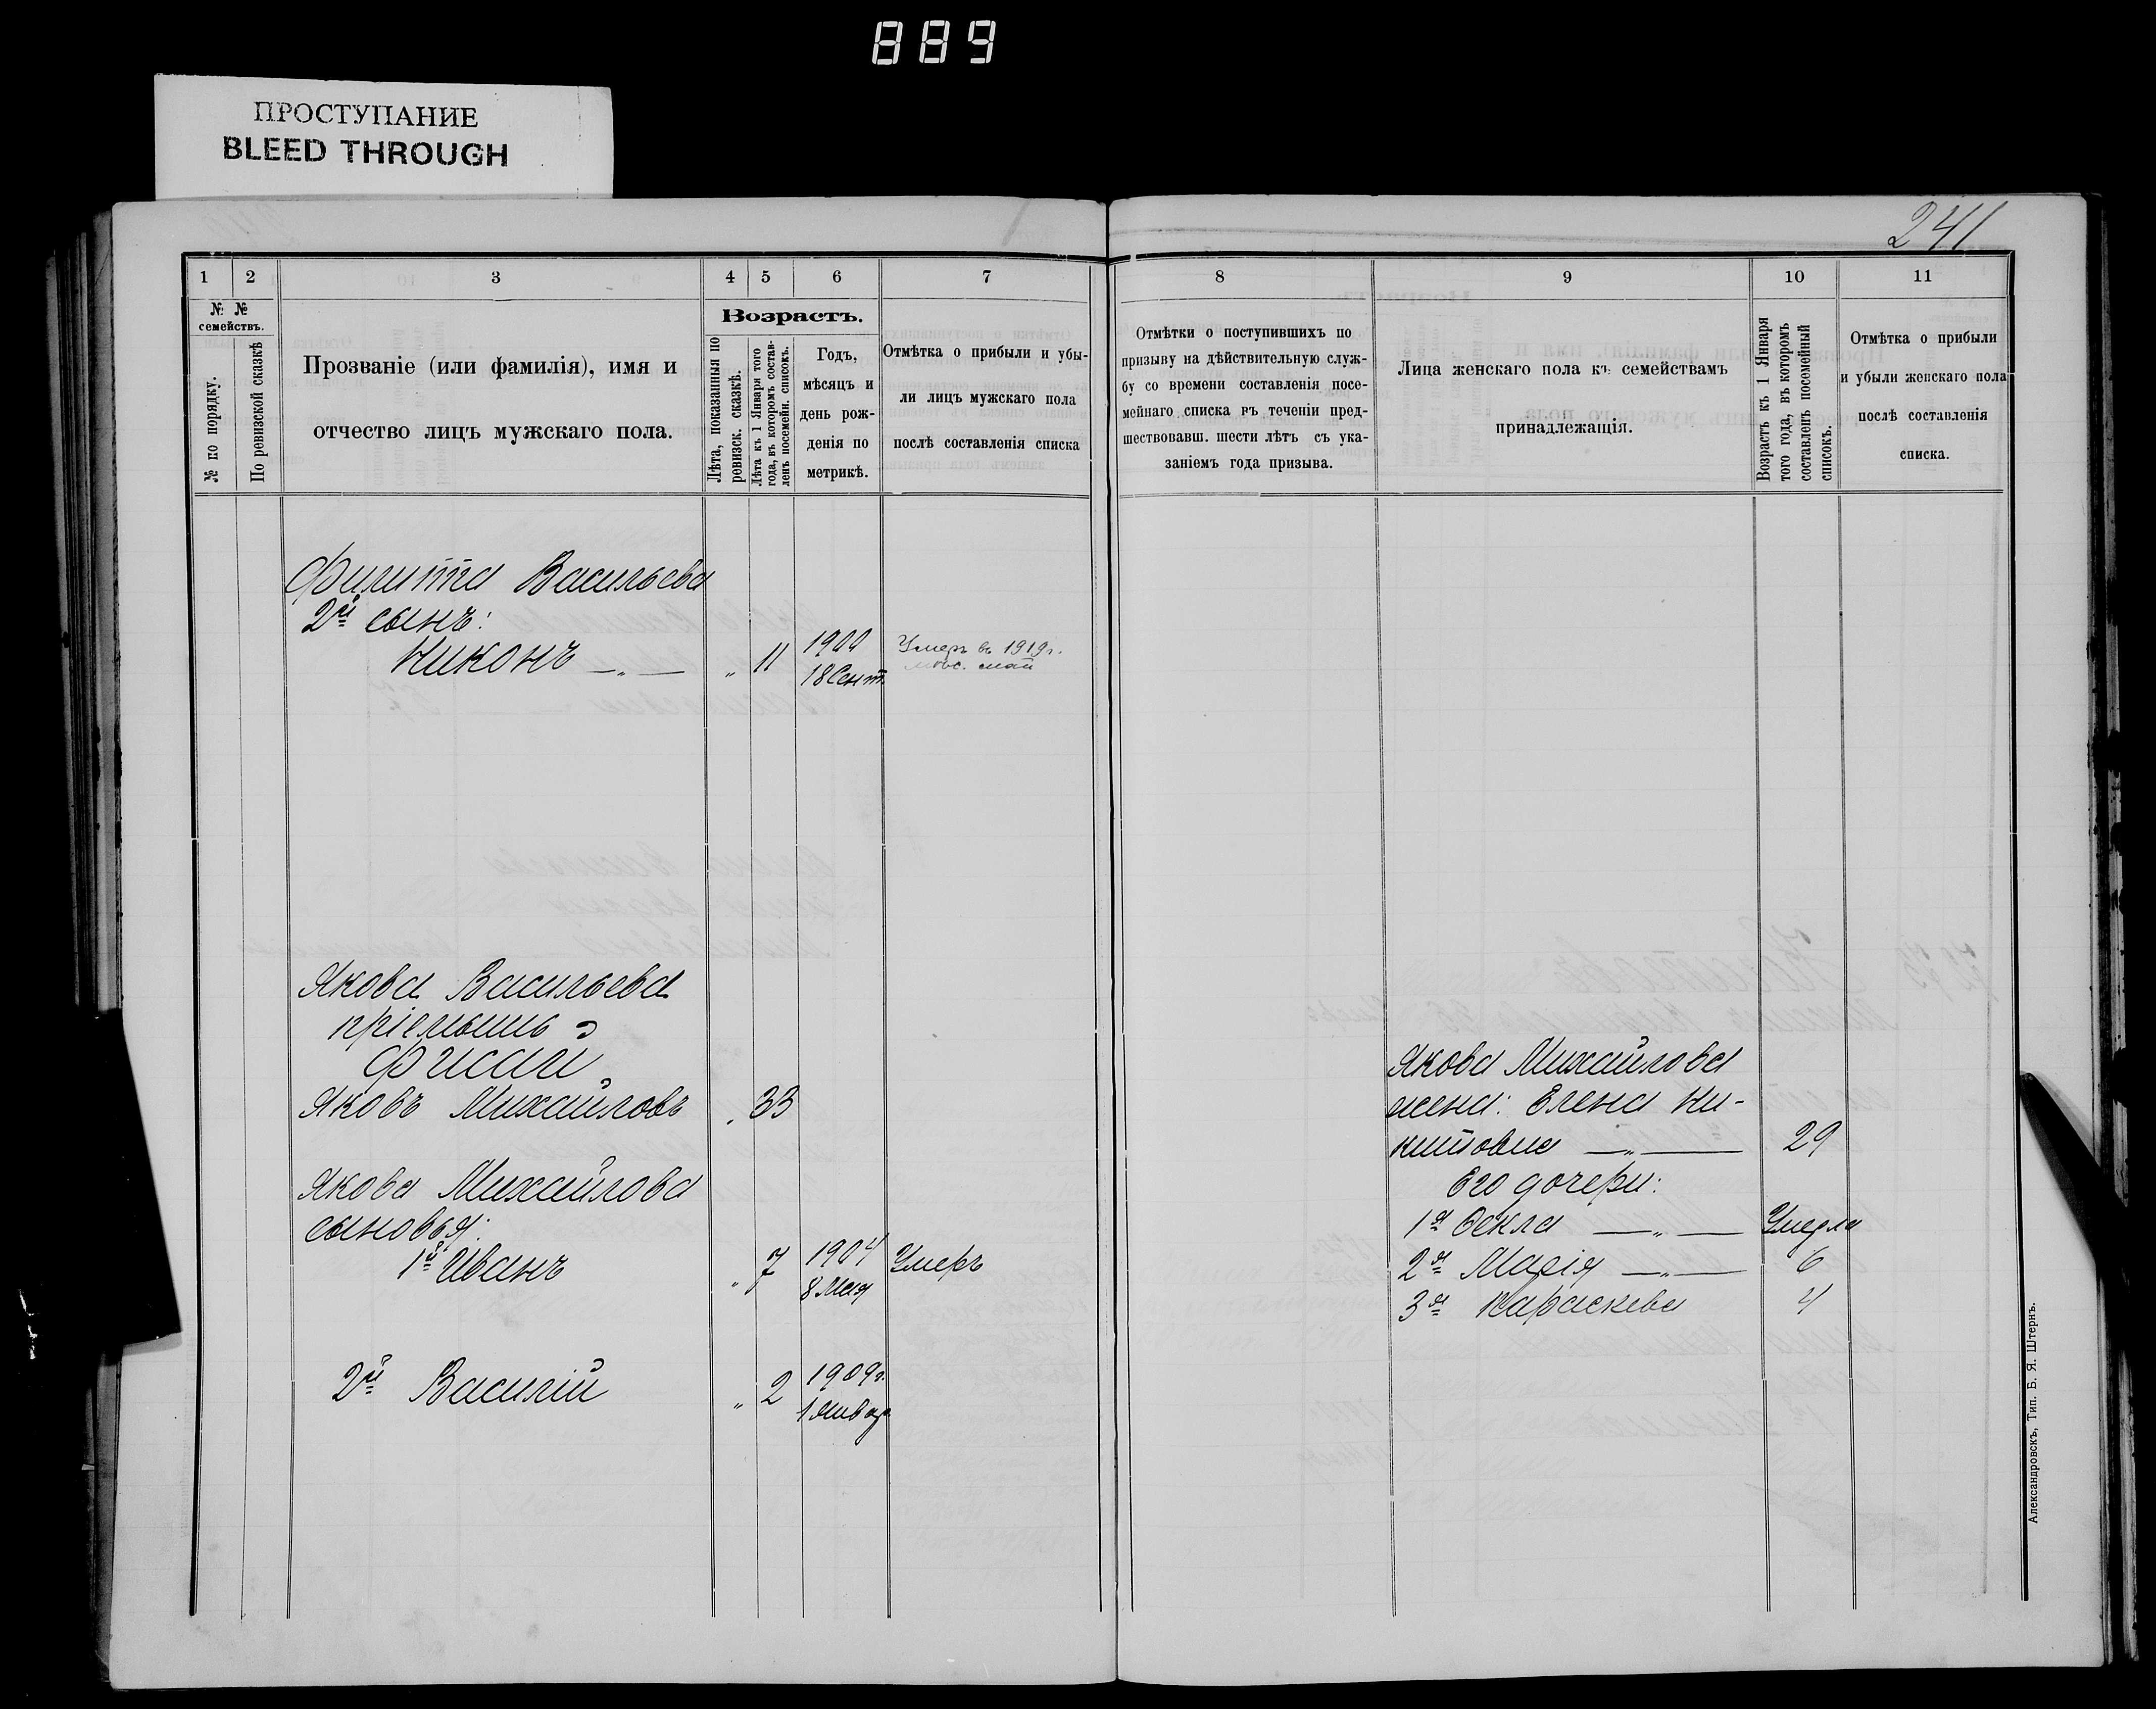 889
ПРОСТУПАНИЕ
BLEED THROUGH
241
1 2 3 4 5 6 7
№ №
семействъ.
№ по порядку.
По ревизской сказкѣ
Прозваніе (или фамилія), имя и
отчество лицъ мужскаго пола.
Возрастъ.
Лѣта, показанныя по
ревизск. сказкѣ.
Лѣта къ 1 Января того
года, въ которомъ состав-
ленъ посемейн. списокъ.
Годъ,
мѣсяцъ и
день рож-
денія по
метрикѣ.
Отмѣтка о прибыли и убы-
ли лицъ мужскаго пола
послѣ составленія списка
8 9 10 11
Отмѣтки о поступившихъ по
призыву на дѣйствительную служ-
бу со времени составленія посе-
мейнаго списка въ теченіи пред-
шествовавш. шести лѣтъ съ ука-
заніемъ года призыва.
Лица женскаго пола къ семействамъ
принадлежащія.
Возрастъ къ 1 Января
того года, въ которомъ
составленъ посемейный
списокъ.
Отмѣтка о прибыли
и убыли женскаго пола
послѣ составленія
списка.
Филиппа Васильева
2й сынъ:
Никонъ —„— „ 11 1900 18 Сент. Умеръ въ 1919г.
мѣс. май
Якова Васильева
пріемышъ
Яковъ Михайловъ „ 33
Якова Михайлова
сыновья:
1й Иванъ „ 7 1904 8 Мая Умеръ
2й Василій „ 2 1909г. 1 Январ
Якова Михайлова
жена: Елена Ни-
китовна —„— 29
Его дочери:
1я Ѳекла —„— Умерла
2я Марія —„— 6
3я Параскева 4
Александровскъ, Тип. Б. Я. Штернъ.